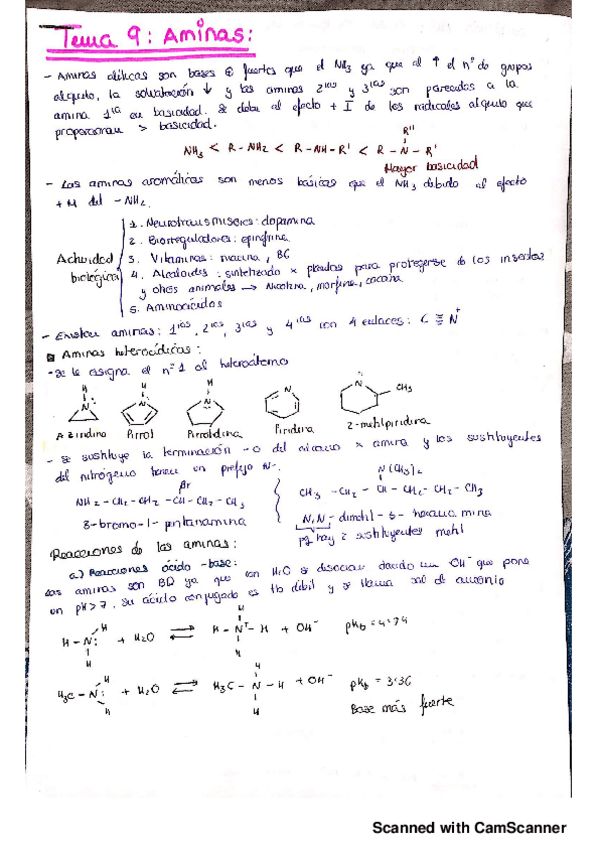 Tema 9: Aminas:
- Aminas cíclicas son bases ⊕ fuertes que el NH3 ya que al ↑ el nº de grupos
alquilo, la solvatación ↓ y las aminas 2ias y 3ias son parecidas a la
amina 1ia en basicidad. Se debe al efecto + I de los radicales alquilo que
proporcionan > basicidad.
R''
NH3 < R - NH2 < R - NH - R' < R - N - R'
Mayor basicidad
- Las aminas aromáticas son menos básicas que el NH3 debido al efecto
+ M del - NH2.
1. Neurotransmisores: dopamina
2. Biorreguladores: epinefrina
Actividad biológica
3. Vitaminas: niacina, B6
4. Alcaloides: sintetizado x plantas para protegerse de los insectos
y otros animales → Nicotina, morfina, cocaína
5. Aminoácidos
- Existen aminas: 1ias, 2ias, 3ias y 4ias con 4 enlaces: C ≡ N+
Aminas heterocíclicas:
- Se le asigna el nº 1 al heteroátomo
H H H N N CH3
N N N
Aziridina Pirrol Pirrolidina Piridina 2-metilpiridina
- Se sustituye la terminación -o del alcano x amina y los sustituyentes
del nitrógeno tienen un prefijo N-.
Br N(CH3)2
NH2 - CH2 - CH2 - CH - CH2 - CH3 CH3 - CH2 - CH - CH2 - CH2 - CH3
3-bromo-1-pentanamina N,N-dimetil-3-hexanamina
pq hay 2 sustituyentes metil
Reacciones de las aminas:
a) Reacciones ácido-base:
Las aminas son BD ya que con H2O se disocian dando un OH- que pone
un pH > 7. Su ácido conjugado es tb débil y se llama sal de amonio
H - N: + H2O ⇌ H - N+ - H + OH- pKb = 4'74
H3C - N: + H2O ⇌ H3C - N - H + OH- pKb = 3'36
Base más fuerte
Scanned with CamScanner